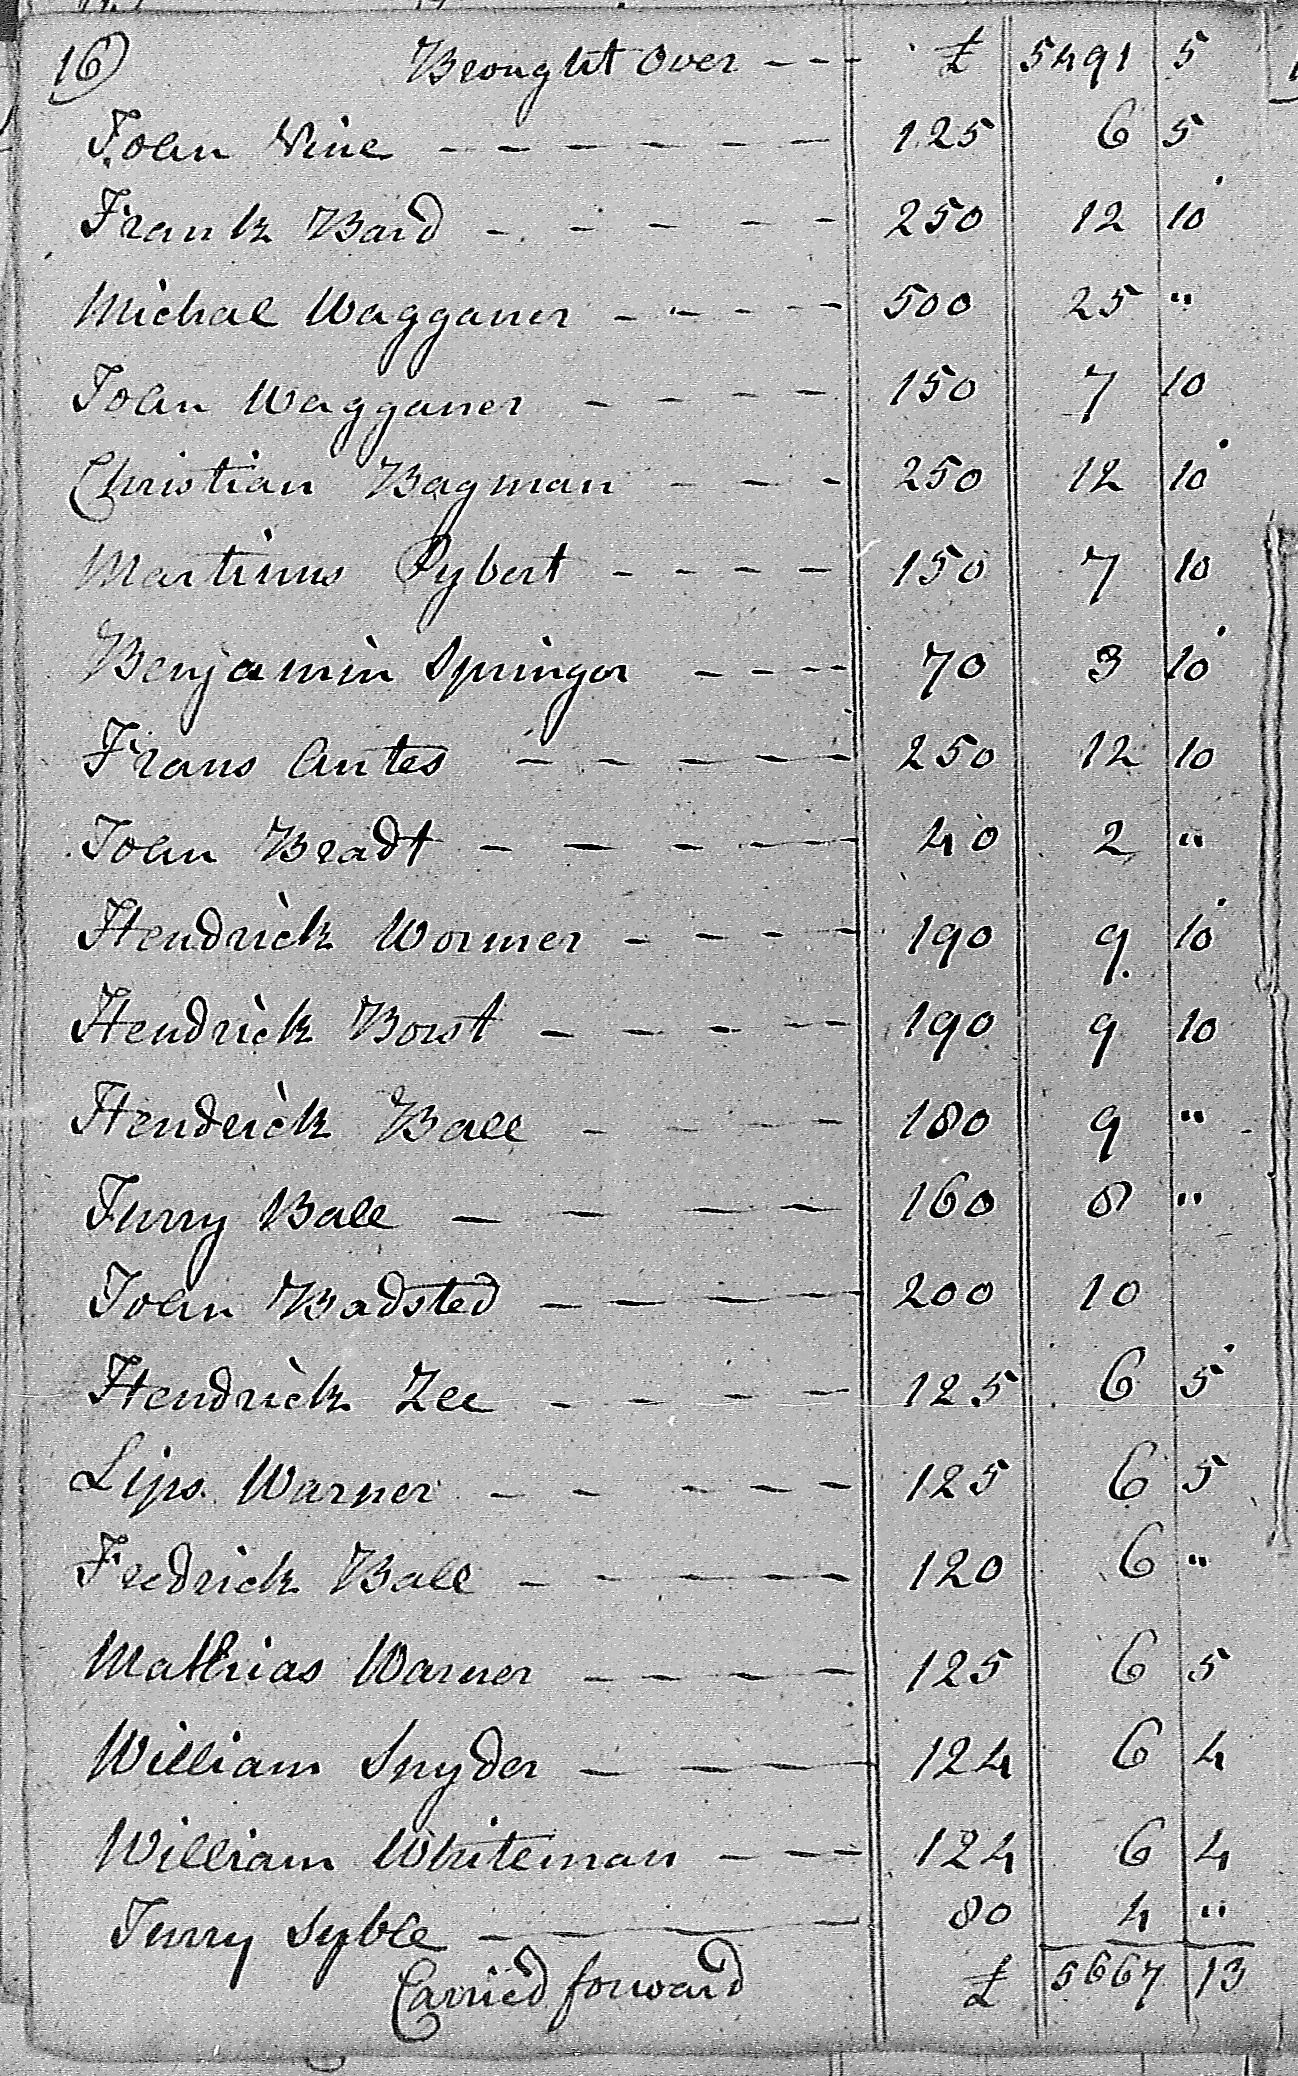 16) Brought Over - - - £ 5491 5
John Nine - - - - - - 125 6 5
Frank Bard - - - - - 250 12 10
Michael Wagganer - - - - 500 25 "
John Wagganer - - - - 150 7 10
Christian Bagman - - - 250 12 10
Martinus Pybert - - - - 150 7 10
Benjamin Springor - - - - 70 3 10
Frans Antes - - - - - 250 12 10
John Bradt - - - - - 40 2 "
Hendrick Wormer - - - - 190 9 10
Hendrick Borst - - - - - 190 9 10
Hendrick Ball - - - - 180 9 "
Jurry Ball - - - - - 160 8 "
John Badsted - - - - 200 10
Hendrick Zee - - - - 125 6 5
Lips Warner - - - - - 125 6 5
Fredrick Ball - - - - - 120 6 "
Mathias Warner - - - - 125 6 5
William Snyder - - - - 124 6 4
William Whiteman - - - 124 6 4
Jurry Syble - - - - 80 4 "
Carried forward £ 5667 13